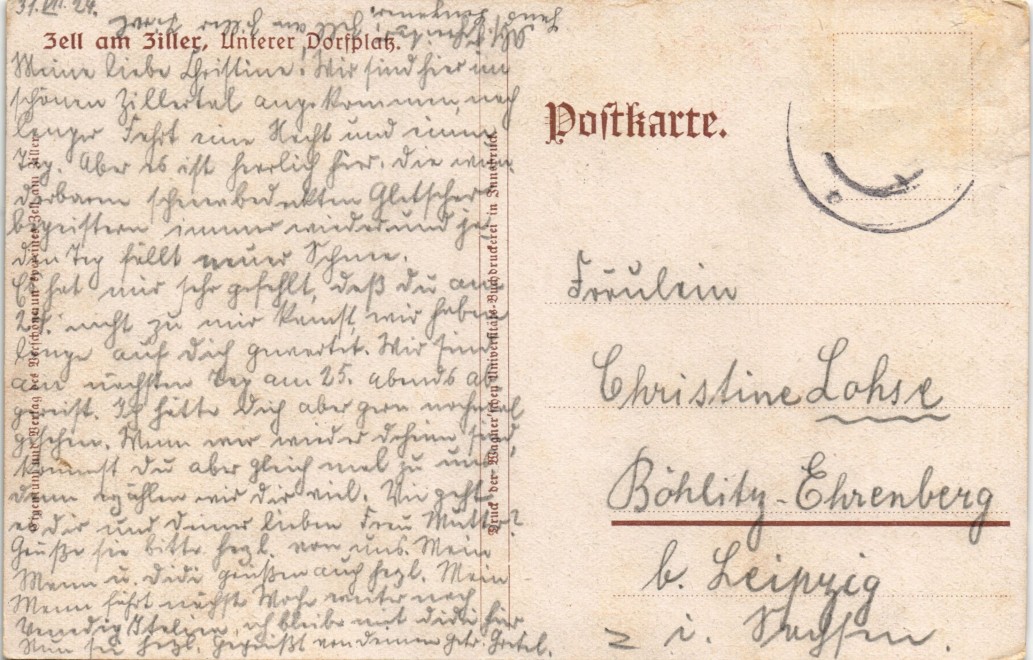 31.VII.24.
Zell am Ziller, Unterer Dorfplatz.
Meine liebe Christine! Wir sind hier im
schönen Zillertal angekommen, nach
langer Fahrt eine Nacht und einen
Tag. Aber es ist herrlich hier. Die wun
derbaren schneebedeckten Gletscher
begeistern immer wieder und je
den Tag fällt neuer Schnee.
Es hat mir sehr gefehlt, daß Du am
24. nicht zu mir kamst, wir haben
lange auf Dich gewartet. Wir sind
am nächsten Tag am 25. abends ab
gereist. Ich hätte Dich aber gern nochmal
gesehen. Wenn wir wieder daheim sind,
kommst Du aber gleich mal zu uns,
dann erzählen wir Dir viel. Wie geht
es Dir und Deiner lieben Frau Mutter?
Grüße sie bitte herzl. von uns. Mein
Mann u. Didi grüßen auch herzl. Mein
Mann fährt nächste Woche weiter nach
Venedig Italien, ich bleibe mit Didi hier
Nun sei herzl. gegrüßt von Deiner getr. Gretel.
Eigentum und Verlag des Verschönerungsvereines Zell am Ziller
Druck der Wagner'schen Universitäts-Buchdruckerei in Innsbruck
Postkarte.
Fräulein
Christine Lohse
Böhlitz-Ehrenberg
b. Leipzig
i. Sachsen.